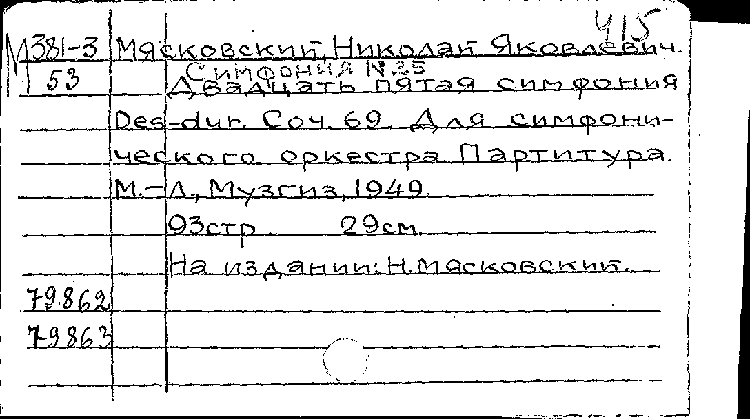 415
М381-3 Мясковский, Николай Яковлевич.
Симфония №25
53 Двадцать пятая симфония
Des-dur. Соч. 69. Для симфони-
ческого оркестра Партитура.
М.-Л., Музгиз, 1949.
93стр. 29см.
На издании: Н. Мясковский.
79862
79863